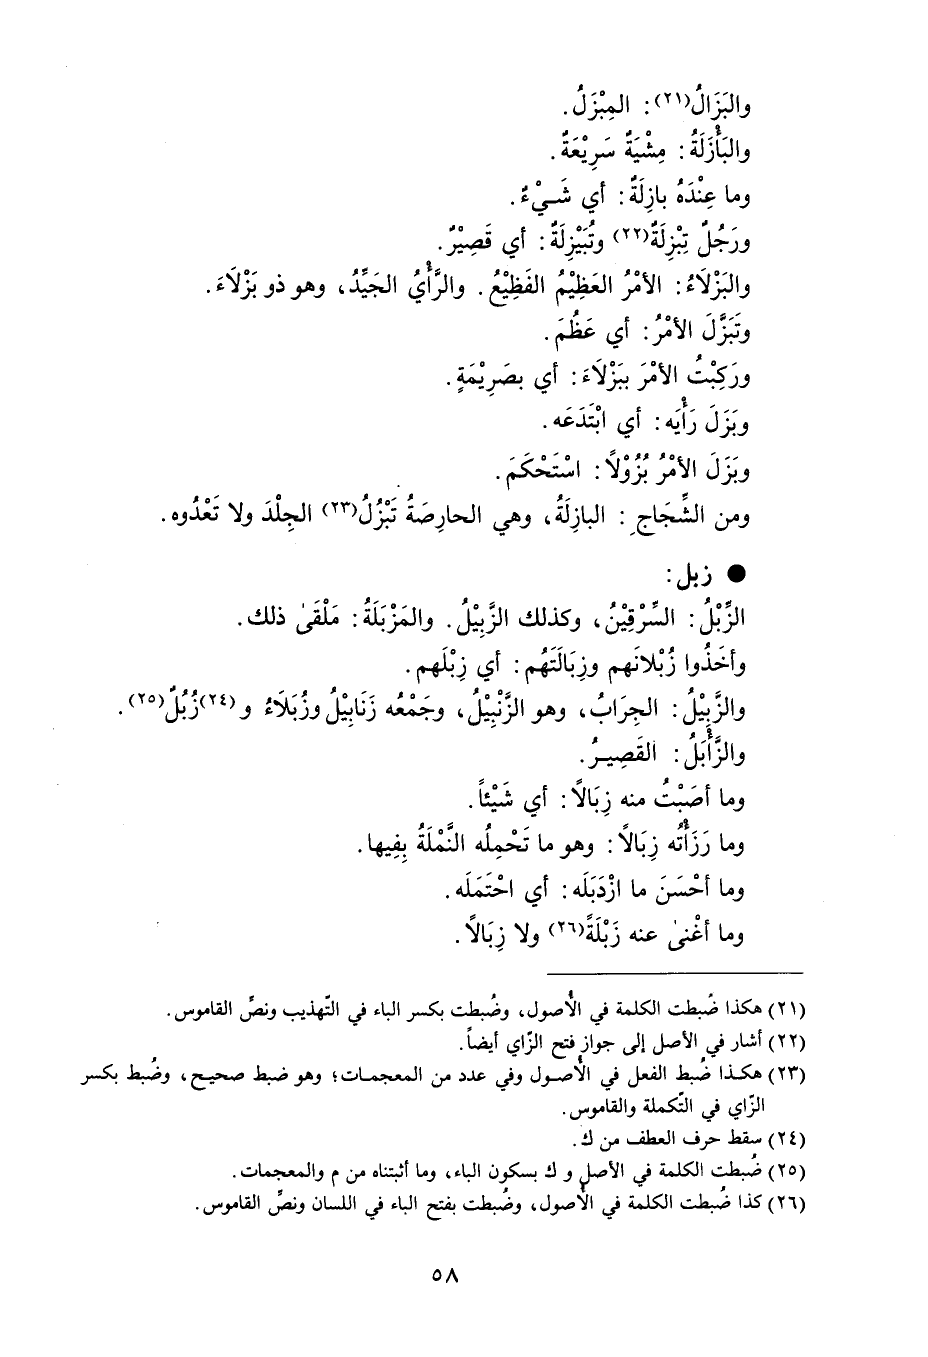 والبَزَالُ(٢١): المِبْزَلُ.
والبَأْزَلَةُ: مِشْيَةٌ سَرِيْعَةٌ.
وما عِنْدَهُ بازِلَةٌ: أي شَـيْءٌ.
ورَجُلٌ تِبْزِلَةٌ(٢٢) وتُبَيْزِلَةٌ: أي قَصِيْرٌ.
والبَزْلَاءُ: الأمْرُ العَظِيْمُ الفَظِيْعُ. والرَّأْيُ الجَيِّدُ، وهو ذو بَزْلَاءَ.
وتَبَزَّلَ الأمْرُ: أي عَظُمَ.
ورَكِبْتُ الأمْرَ بِبَزْلَاءَ: أي بصَرِيْمَةٍ.
وبَزَلَ رَأْيَه: أي ابْتَدَعَه.
وبَزَلَ الأمْرُ بُزُوْلاً: اسْتَحْكَمَ.
ومن الشِّجَاجِ: البازِلَةُ، وهي الحارِصَةُ تَبْزُلُ(٢٣) الجِلْدَ ولا تَعْدُوه.
● زبل:
الزِّبْلُ: السِّرْقِيْنُ، وكذلك الزَّبِيْلُ. والمَزْبَلَةُ: مَلْقَىٰ ذلك.
وأخَذُوا زُبْلانَهم وزِبَالَتَهُم: أي زِبْلَهم.
والزَّبِيْلُ: الجِرَابُ، وهو الزَّنْبِيْلُ، وجَمْعُه زَنَابِيْلُ وزُبَلَاءُ و(٢٤)زُبُلٌ(٢٥).
والزَّأْبَلُ: القَصِيـرُ.
وما أصَبْتُ منه زِبَالاً: أي شَيْئاً.
وما رَزَأْتُه زِبَالاً: وهو ما تَحْمِلُه النَّمْلَةُ بِفِيها.
وما أحْسَنَ ما ازْدَبَلَه: أي احْتَمَلَه.
وما أغْنىٰ عنه زَبْلَةً(٢٦) ولا زِبَالاً.
(٢١) هكذا ضُبطت الكلمة في الأُصول، وضُبطت بكسر الباء في التّهذيب ونصِّ القاموس.
(٢٢) أشار في الأصل إلى جواز فتح الزّاي أيضاً.
(٢٣) هكـذا ضُبط الفعل في الأُصـول وفي عدد من المعجمات؛ وهو ضبط صحيـح، وضُبط بكسر
الزّاي في التّكملة والقاموس.
(٢٤) سقط حرف العطف من ك.
(٢٥) ضُبطت الكلمة في الأصل و ك بسكون الباء، وما أثبتناه من م والمعجمات.
(٢٦) كذا ضُبطت الكلمة في الأُصول، وضُبطت بفتح الباء في اللسان ونصِّ القاموس.
٥٨